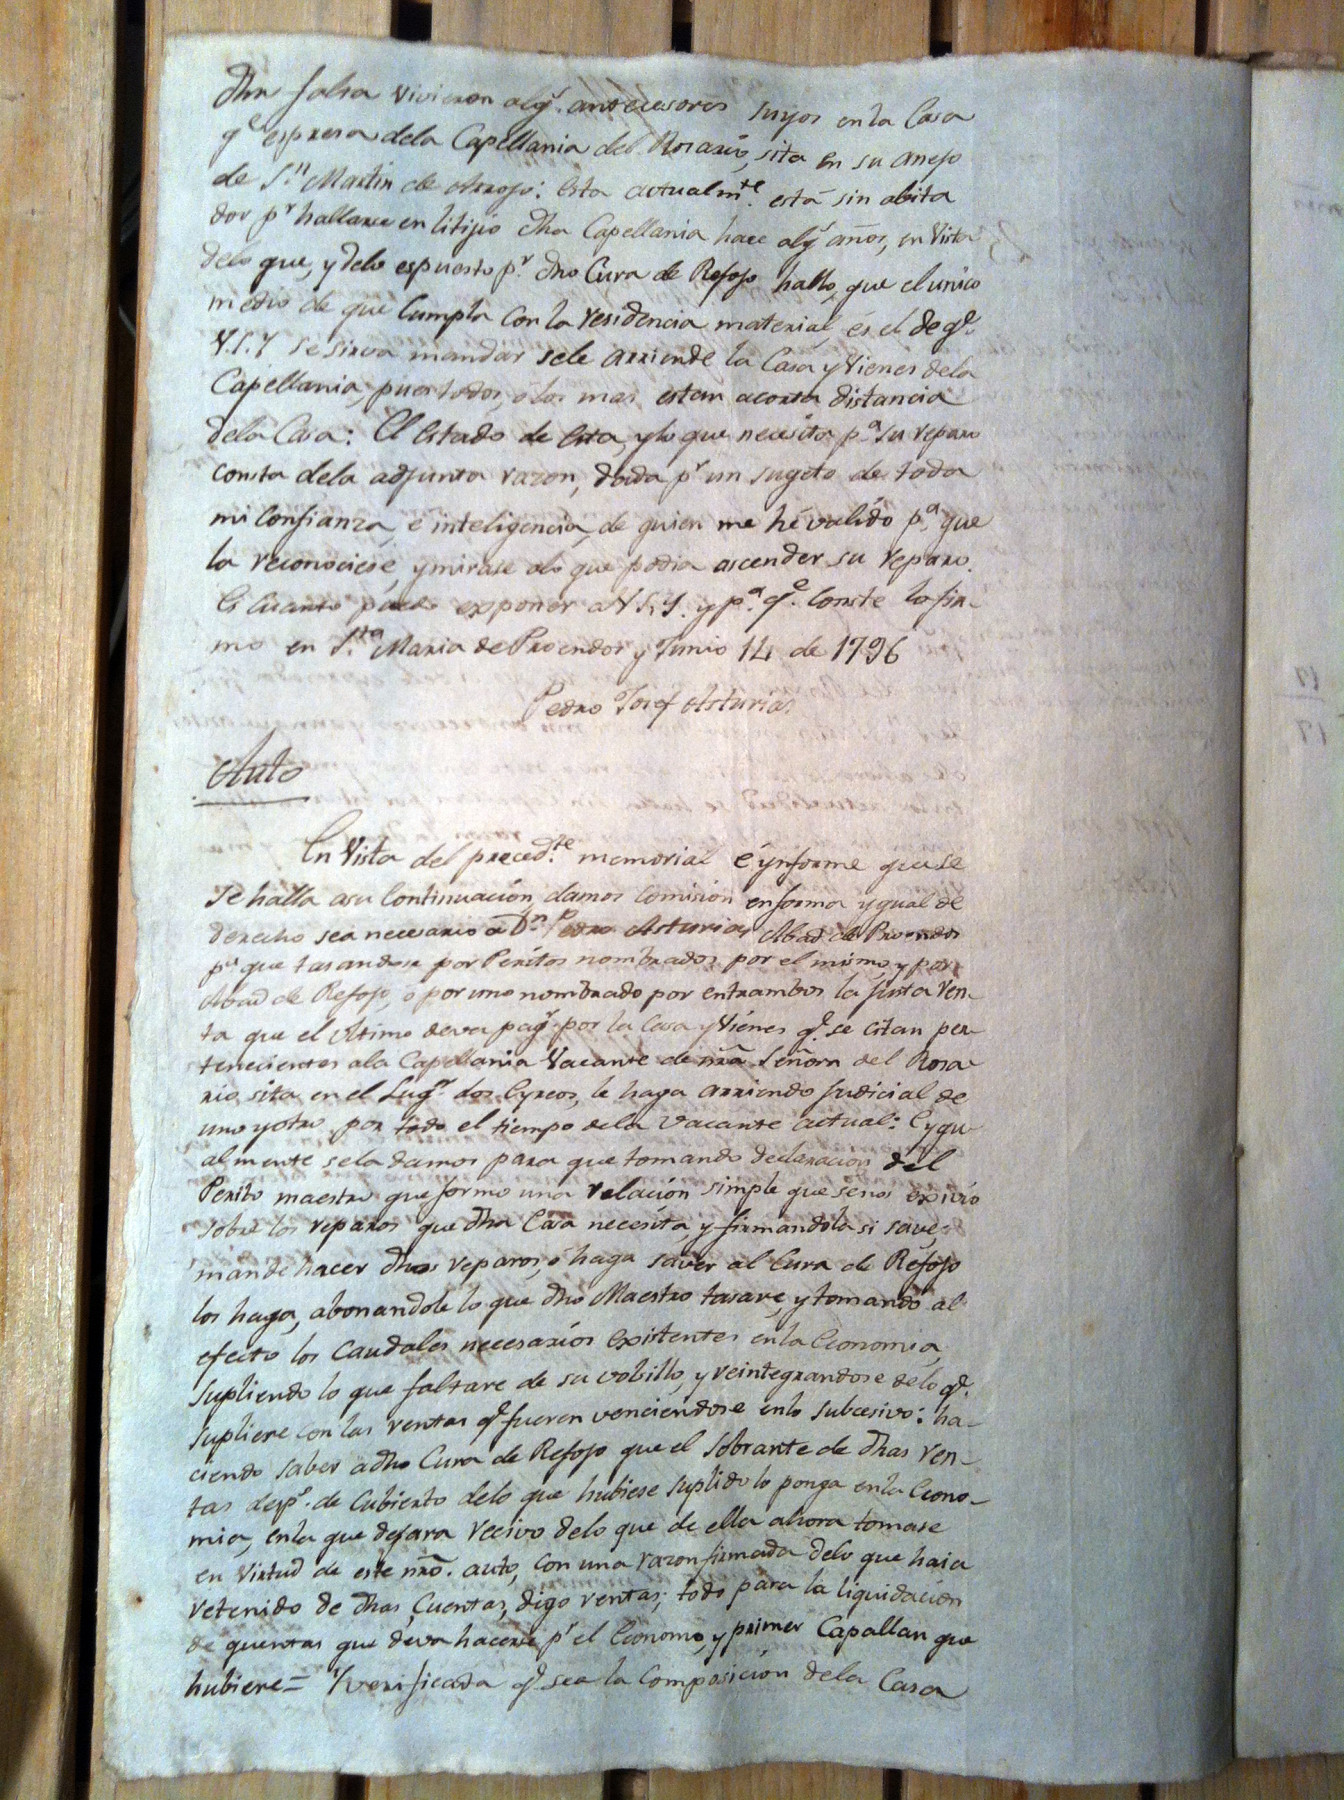 dha falsa vivieron algs. antecesores suyos en la Casa
qe espresa dela Capellania del Rosario, sita en su anejo
de Sn Martin de Arrojo: Esta actualmte. está sin abita
dor pr hallarse en litijio dha Capellania hace algs años, en Vista
delo que, y delo espuesto pr. dho Cura de Refojo hallo, que el unico
medio de que Cumpla con la residencia material, és el de qe.
V.S.Y se sirva mandar sele arriende la Casa y Vienes dela
Capellania, pues todos, ó los mas estan acorta distancia
dela Casa: El Estado de Esta, y lo que necesita pa su reparo
consta dela adjunta razon, dada pr un sugeto de toda
mi Confianza, é inteligencia, de quien me hé valido pa. que
la reconociese, y mirase alo que podia ascender su reparo.
Es Cuanto puedo exponer a V.S.Y. y pa. qe. Conste lo fir-
mo en Sta. Maria de Proendos y Junio 14 de 1796
Pedro Josef Asturias
Auto
En Vista del precedte. memorial é ynforme que se
se halla asu Continuación, damos Comisión en forma ygual de
derecho sea necesario a Dn. Pedro Asturias Abad de Proendos
pa que tasandose por Peritos nombrados por el mismo, y por
Abad de Refojo, ó por uno nombrado por entrambos la justa ren-
ta que el ultimo deva pagr. por la Casa y Viénes qe. se citan per-
tenecientes ala Capellania Vacante de nra Señora del Rosa-
rio sita en el Lugr. dos Eyreos, le haga arriendo Judicial de
uno y otro, por todo el tiempo dela vacante actual: E ygu-
almente sela damos para que tomando declaracion del
Perito maestro que formo una relación simple que senos exivio
sobre los reparos que dha Casa necesita, y firmandola si save,
mande hacer dhos reparos, ó haga saver al Cura de Refojo
los haga, abonandole lo que dho Maestro tasare, y tomando al
efecto los Caudales necesarios existentes en la Economia,
supliendo lo que faltare de su volsillo, y reintegrandose delo qe.
supliere con las rentas qe. fueren venciendose en lo subcesivo: ha-
ciendo saber a dho Cura de Refojo que el sobrante de dhas ren-
tas desps. de Cubierto delo que hubiese suplido lo ponga en la Econo-
mia, en la que dejara recivo delo que de ella ahora tomase
en virtud de este nro. auto, con una razon firmada delo que haia
retenido de dhas Cuentas, digo rentas; todo para la liquidación
de quentas que deva hacerse pr el Economo, y primer Capallan que
hubiere = Y verificada qe. sea la Composición dela Casa